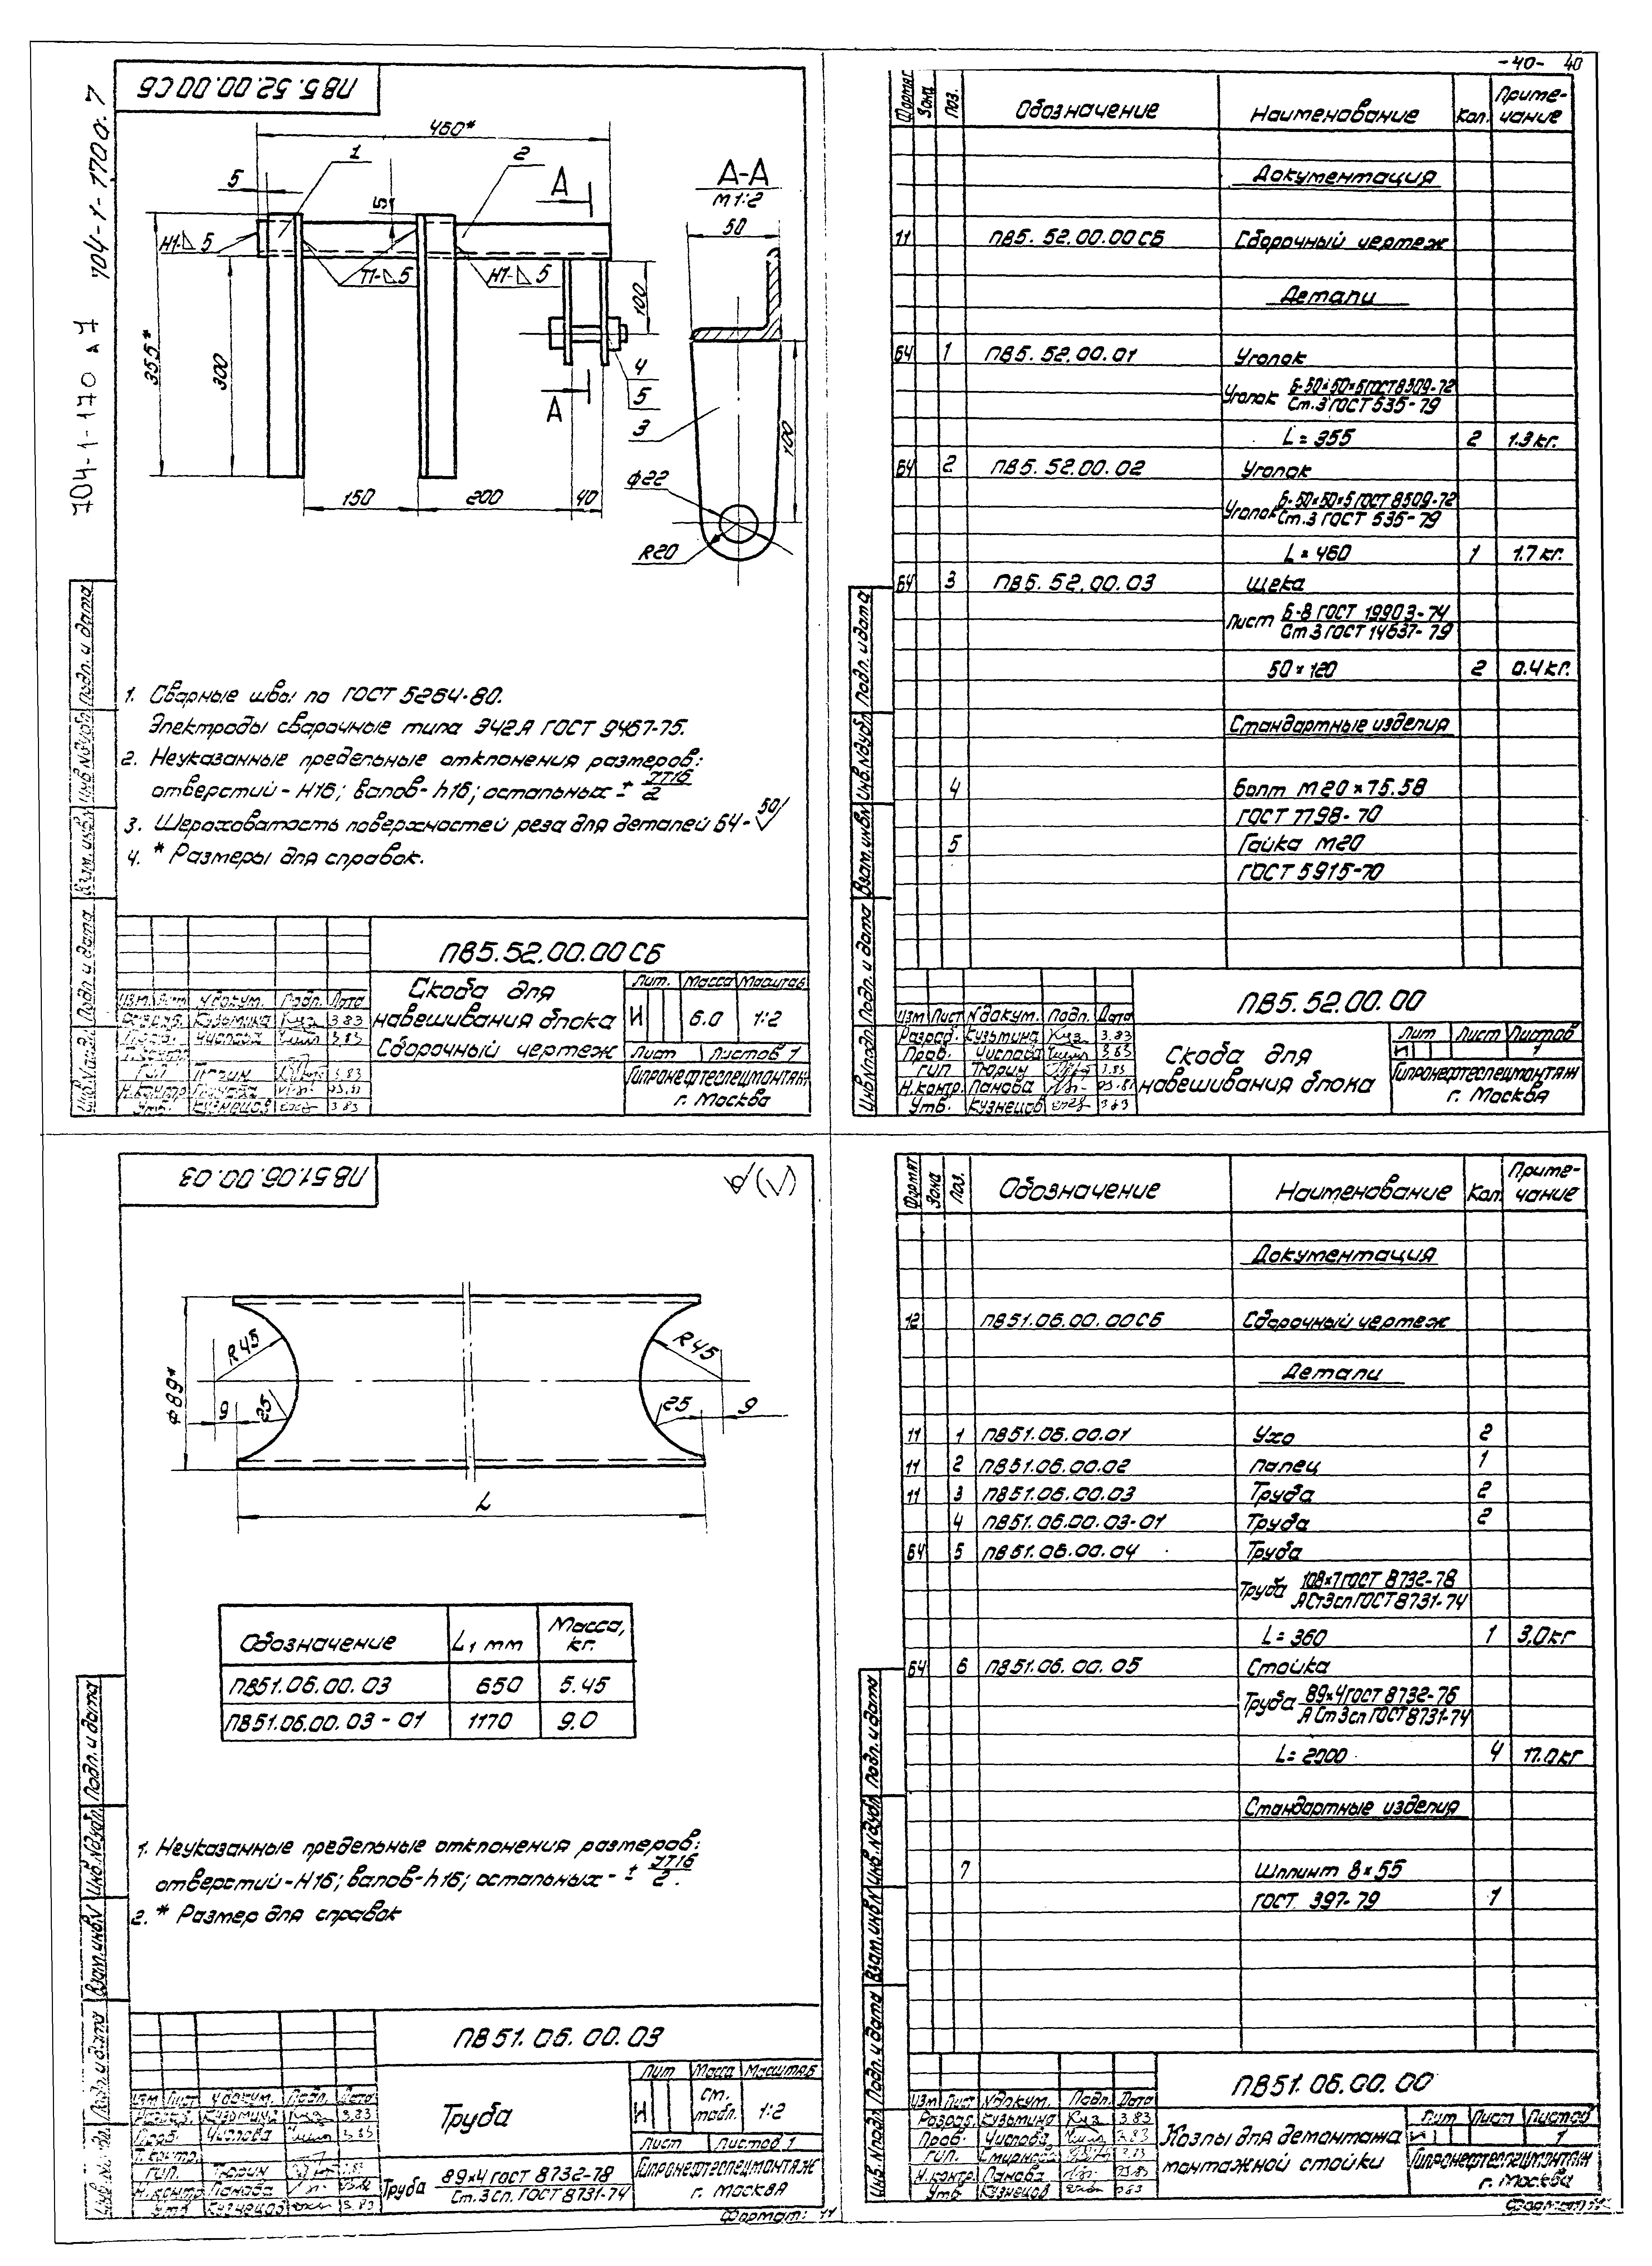 -40- 40
704-1-170 а 7 704-1-170с. 7
ПВ5.52.00.00СБ
460*
1
2
5
5
А
А-А
М1:2
50
Н1-⊿5
Т1-⊿5
Н1-⊿5
100
355*
300
4
5
А
3
100
150
200
40
ф22
R20
1. Сварные швы по ГОСТ 5264-80.
Электроды сварочные типа Э42А ГОСТ 9467-75.
2. Неуказанные предельные отклонения размеров:
отверстий - Н16; валов - h16; остальных ± JT16/2
3. Шероховатость поверхностей реза для деталей БЧ - 50/
4. * Размеры для справок.
ПВ5.52.00.00СБ
Скоба для
навешивания блока
Сборочный чертеж
Лит. Масса Масштаб
И 6.0 1:2
Лист Листов 1
Гипронефтеспецмонтаж
г. Москва
Изм Лист N докум. Подп. Дата
Разраб. Кузьмина Куз 3.83
Пров. Числова 3.83
Т.контр.
ГИП Тюрин 3.83
Н.контр. Панова
Утв. Кузнецов 3.83
Инв.N подл. Подп. и дата Взам.инв.N Инв.N дубл. Подп. и дата
Формат Зона Поз. Обозначение Наименование Кол. Приме-
чание
Документация
11 ПВ5.52.00.00СБ Сборочный чертеж
Детали
БЧ 1 ПВ5.52.00.01 Уголок
Уголок Б-50×50×5 ГОСТ 8509-72
Ст.3 ГОСТ 535-79
L = 355 2 1.3 кг.
БЧ 2 ПВ5.52.00.02 Уголок
Уголок Б-50×50×5 ГОСТ 8509-72
Ст.3 ГОСТ 535-79
L = 460 1 1.7 кг.
БЧ 3 ПВ5.52.00.03 Щека
Лист Б-8 ГОСТ 19903-74
Ст 3 ГОСТ 14637-79
50×120 2 0.4 кг.
Стандартные изделия
4 Болт М20×75.58
ГОСТ 7798-70
5 Гайка М20
ГОСТ 5915-70
ПВ5.52.00.00
Скоба для
навешивания блока
Лит Лист Листов
И 1
Гипронефтеспецмонтаж
г. Москва
Изм Лист N докум. Подп. Дата
Разраб. Кузьмина Куз 3.83
Пров. Числова 3.83
ГИП. Тюрин 3.83
Н.контр. Панова
Утв. Кузнецов 3.83
Инв.N подл. Подп. и дата Взам.инв.N Инв.N дубл. Подп. и дата
ПВ51.06.00.03
√(√)
ф89*
R45
R45
9
25
25
9
L
Обозначение L, мм Масса,
кг.
ПВ51.06.00.03 650 5.45
ПВ51.06.00.03-01 1170 9.0
1. Неуказанные предельные отклонения размеров:
отверстий - Н16; валов - h16; остальных - ± JT16/2.
2. * Размер для справок
ПВ51.06.00.03
Труба
Лит Масса Масштаб
И см.
табл. 1:2
Лист Листов 1
Труба 89×4 ГОСТ 8732-78
Ст.3 сп. ГОСТ 8731-74
Гипронефтеспецмонтаж
г. Москва
Изм Лист N докум. Подп. Дата
Разраб. Кузьмина Куз 3.83
Пров. Числова 3.83
Т.контр.
ГИП. Тюрин
Н.контр. Панова
Утв Кузнецов 3.83
Подп. и дата Взам.инв.N Инв.N дубл. Подп. и дата
Формат: 11
Формат Зона Поз. Обозначение Наименование Кол. Приме-
чание
Документация
12 ПВ51.06.00.00СБ Сборочный чертеж
Детали
11 1 ПВ51.06.00.01 Ухо 2
11 2 ПВ51.06.00.02 Палец 1
11 3 ПВ51.06.00.03 Труба 2
4 ПВ51.06.00.03-01 Труба 2
БЧ 5 ПВ51.06.00.04 Труба
Труба 108×7 ГОСТ 8732-78
А Ст3сп ГОСТ 8731-74
L = 360 1 3,0 кг
БЧ 6 ПВ51.06.00.05 Стойка
Труба 89×4 ГОСТ 8732-76
А Ст3сп ГОСТ 8731-74
L = 2000 4 17.0 кг
Стандартные изделия
7 Шплинт 8×55
ГОСТ 397-79 1
ПВ51.06.00.00
Козлы для демонтажа
монтажной стойки
Лит Лист Листов
И 1
Гипронефтеспецмонтаж
г. Москва
Изм Лист N докум. Подп. Дата
Разраб Кузьмина Куз 3.83
Пров. Числова 3.83
ГИП. Смирнов 3.83
Н.контр Панова
Утв Кузнецов
Инв.N подл. Подп. и дата Взам.инв.N Инв.N дубл. Подп. и дата